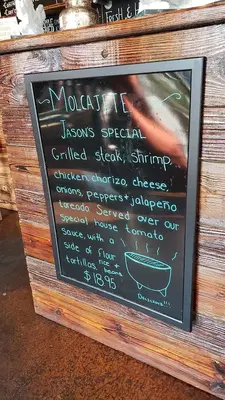 MOLCAJETE
JASONS SPECIAL
Grilled steak, shrimp,
chicken, chorizo, cheese,
onions, peppers + jalapeño
toreado Served over our
Special house tomato
Sauce, with a
side of flour
tortillas, rice +
beans
$18.95
Delicious!!!